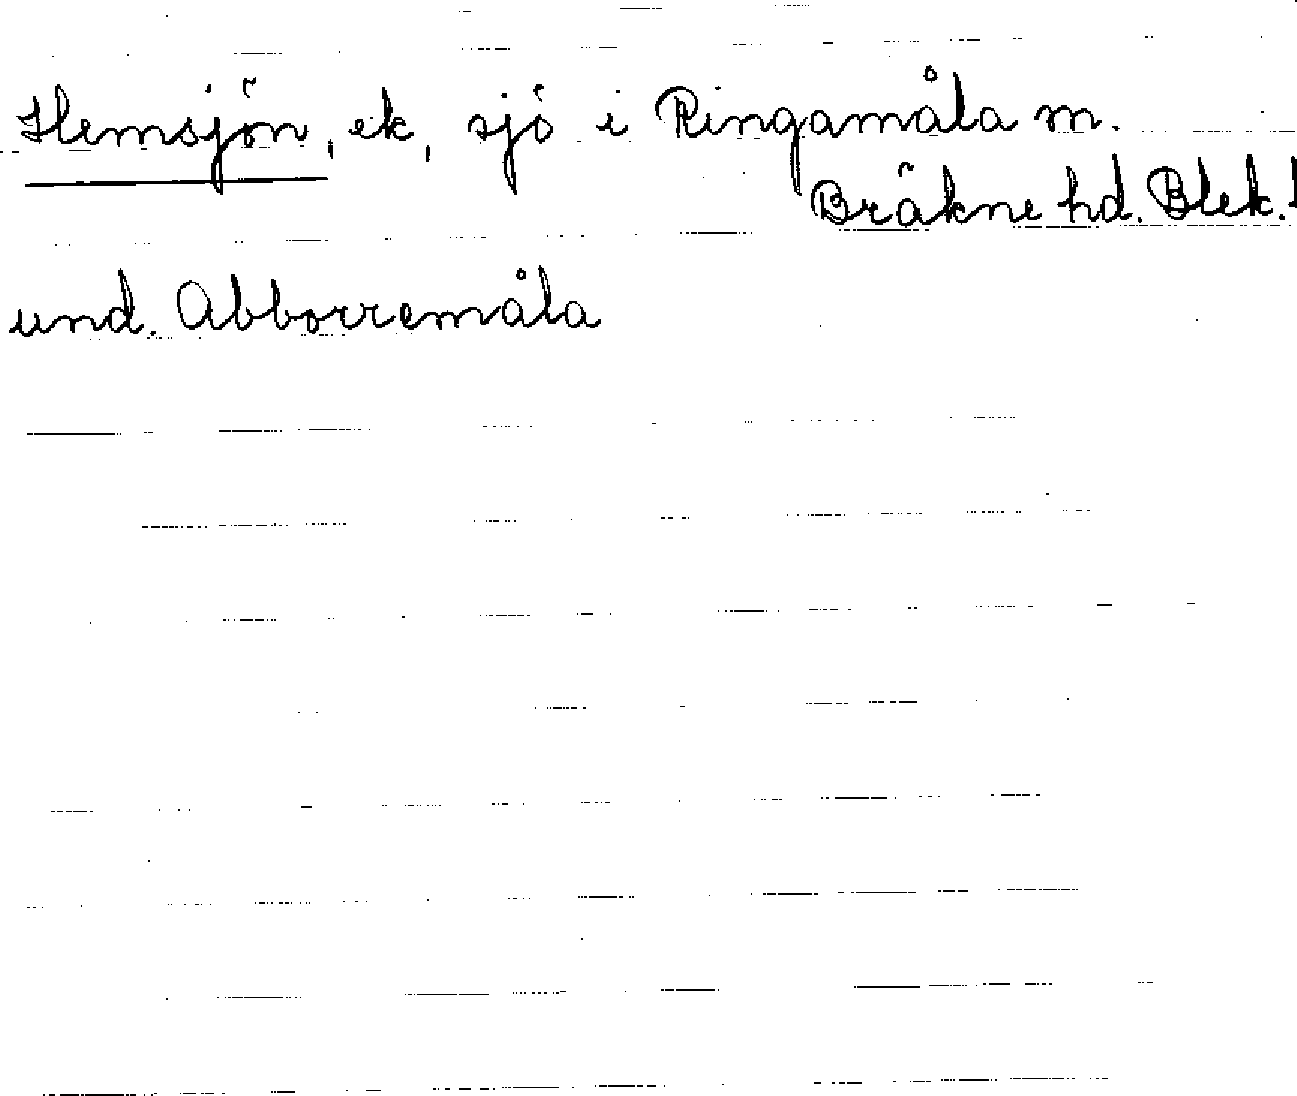 Hemsjön, ek, sjö i Ringamåla m.
Bräkne hd. Blek.
und. Abborremåla